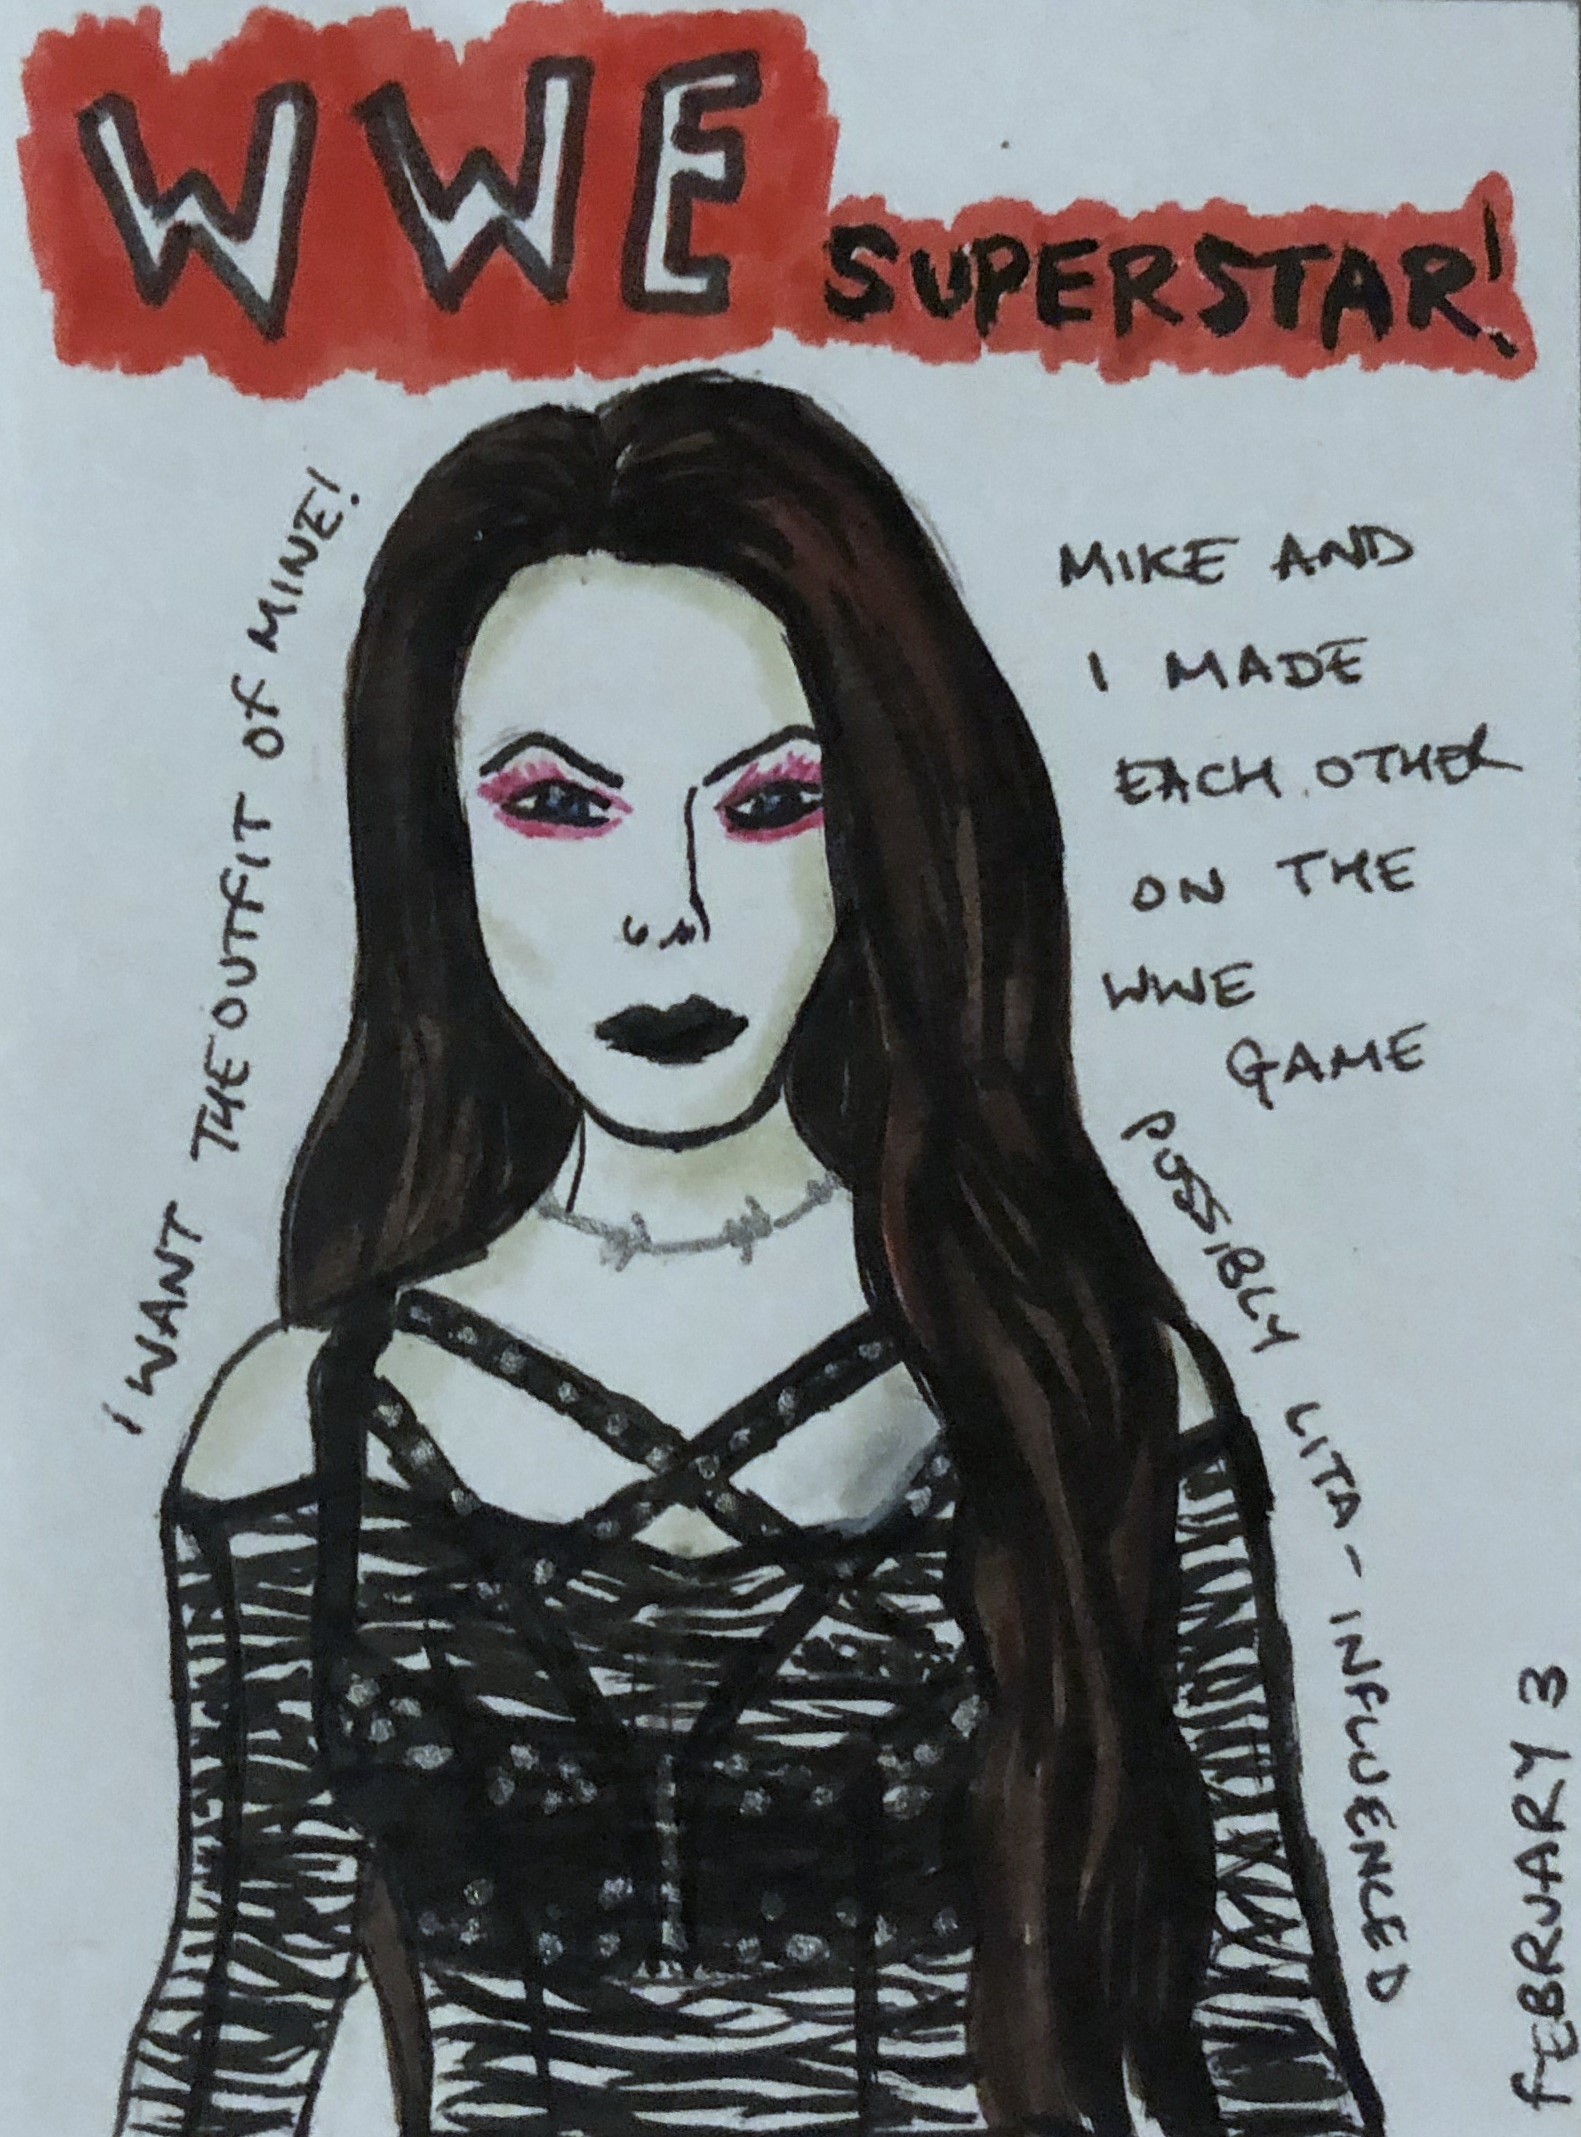 WWE SUPERSTAR!
I WANT THE OUTFIT OF MINE!
MIKE AND
I MADE
EACH OTHER
ON THE
WWE
GAME
POSSIBLY LITA-INFLUENCED
FEBRUARY 3